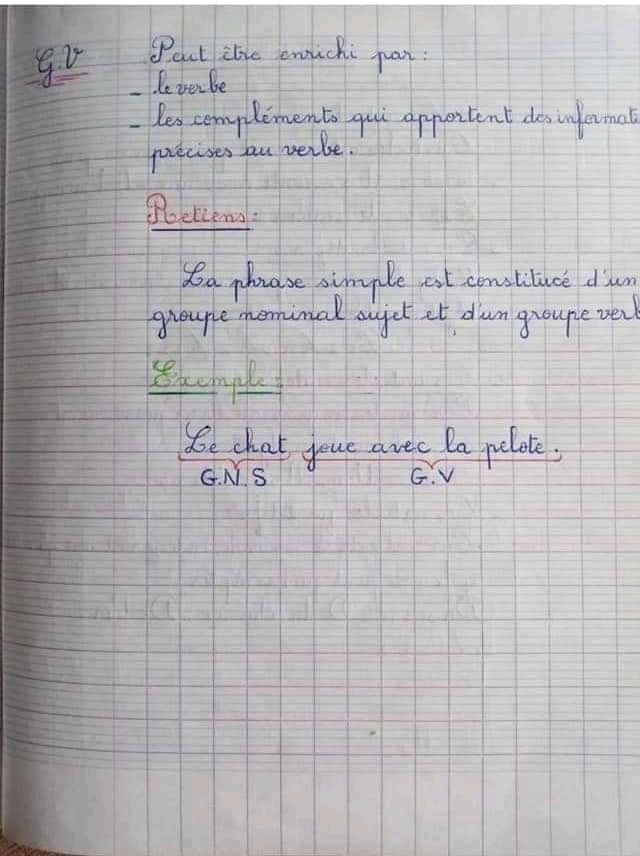 G.V Peut être enrichi par :
- le verbe
- les compléments qui apportent des informati
précises au verbe.
Retiens :
La phrase simple est constitueé d'un
groupe nominal sujet et d'un groupe verb
Exemple :
Le chat joue avec la pelote.
G.N.S G.V